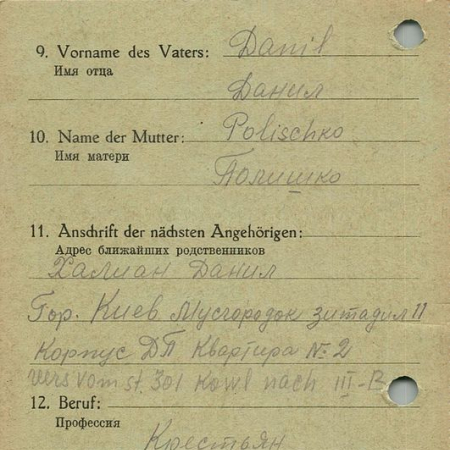 9. Vorname des Vaters: Danil
Имя отца
Данил
10. Name der Mutter: Polischko
Имя матери
Полишко
11. Anschrift der nächsten Angehörigen:
Адрес ближайших родственников
Халиан Данил
Гор. Киев Мусгородок зитадил 11
Корпус ДП Квартира № 2
vers vom st. 301 Kowl nach III-B
12. Beruf:
Профессия
Крестьян